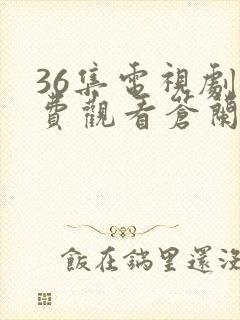 36集電視劇
費觀看蒼蘭
飯在鍋里還沒